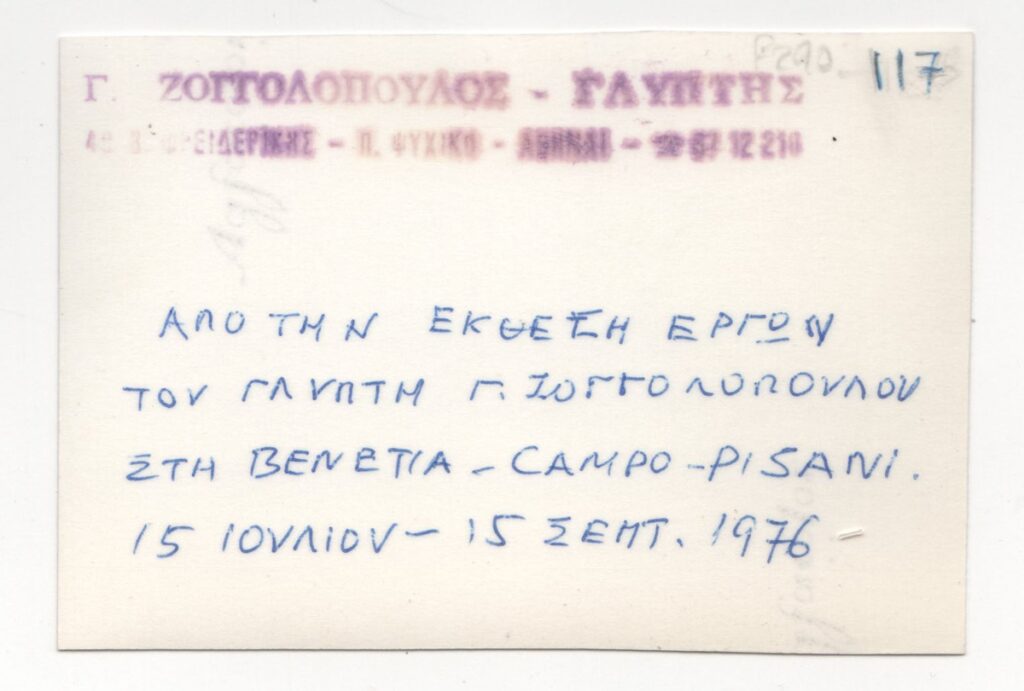 117
Γ. ΖΟΓΓΟΛΟΠΟΥΛΟΣ - ΓΛΥΠΤΗΣ
ΦΡΕΙΔΕΡΙΚΗΣ - Π. ΨΥΧΙΚΟ - ΑΘΗΝΑΙ - ☎ 67 12 210
ΑΠΟ ΤΗΝ ΕΚΘΕΣΗ ΕΡΓΩΝ
ΤΟΥ ΓΛΥΠΤΗ Γ. ΖΟΓΓΟΛΟΠΟΥΛΟΥ
ΣΤΗ ΒΕΝΕΤΙΑ - CAMPO - PISANI.
15 ΙΟΥΛΙΟΥ - 15 ΣΕΠΤ. 1976